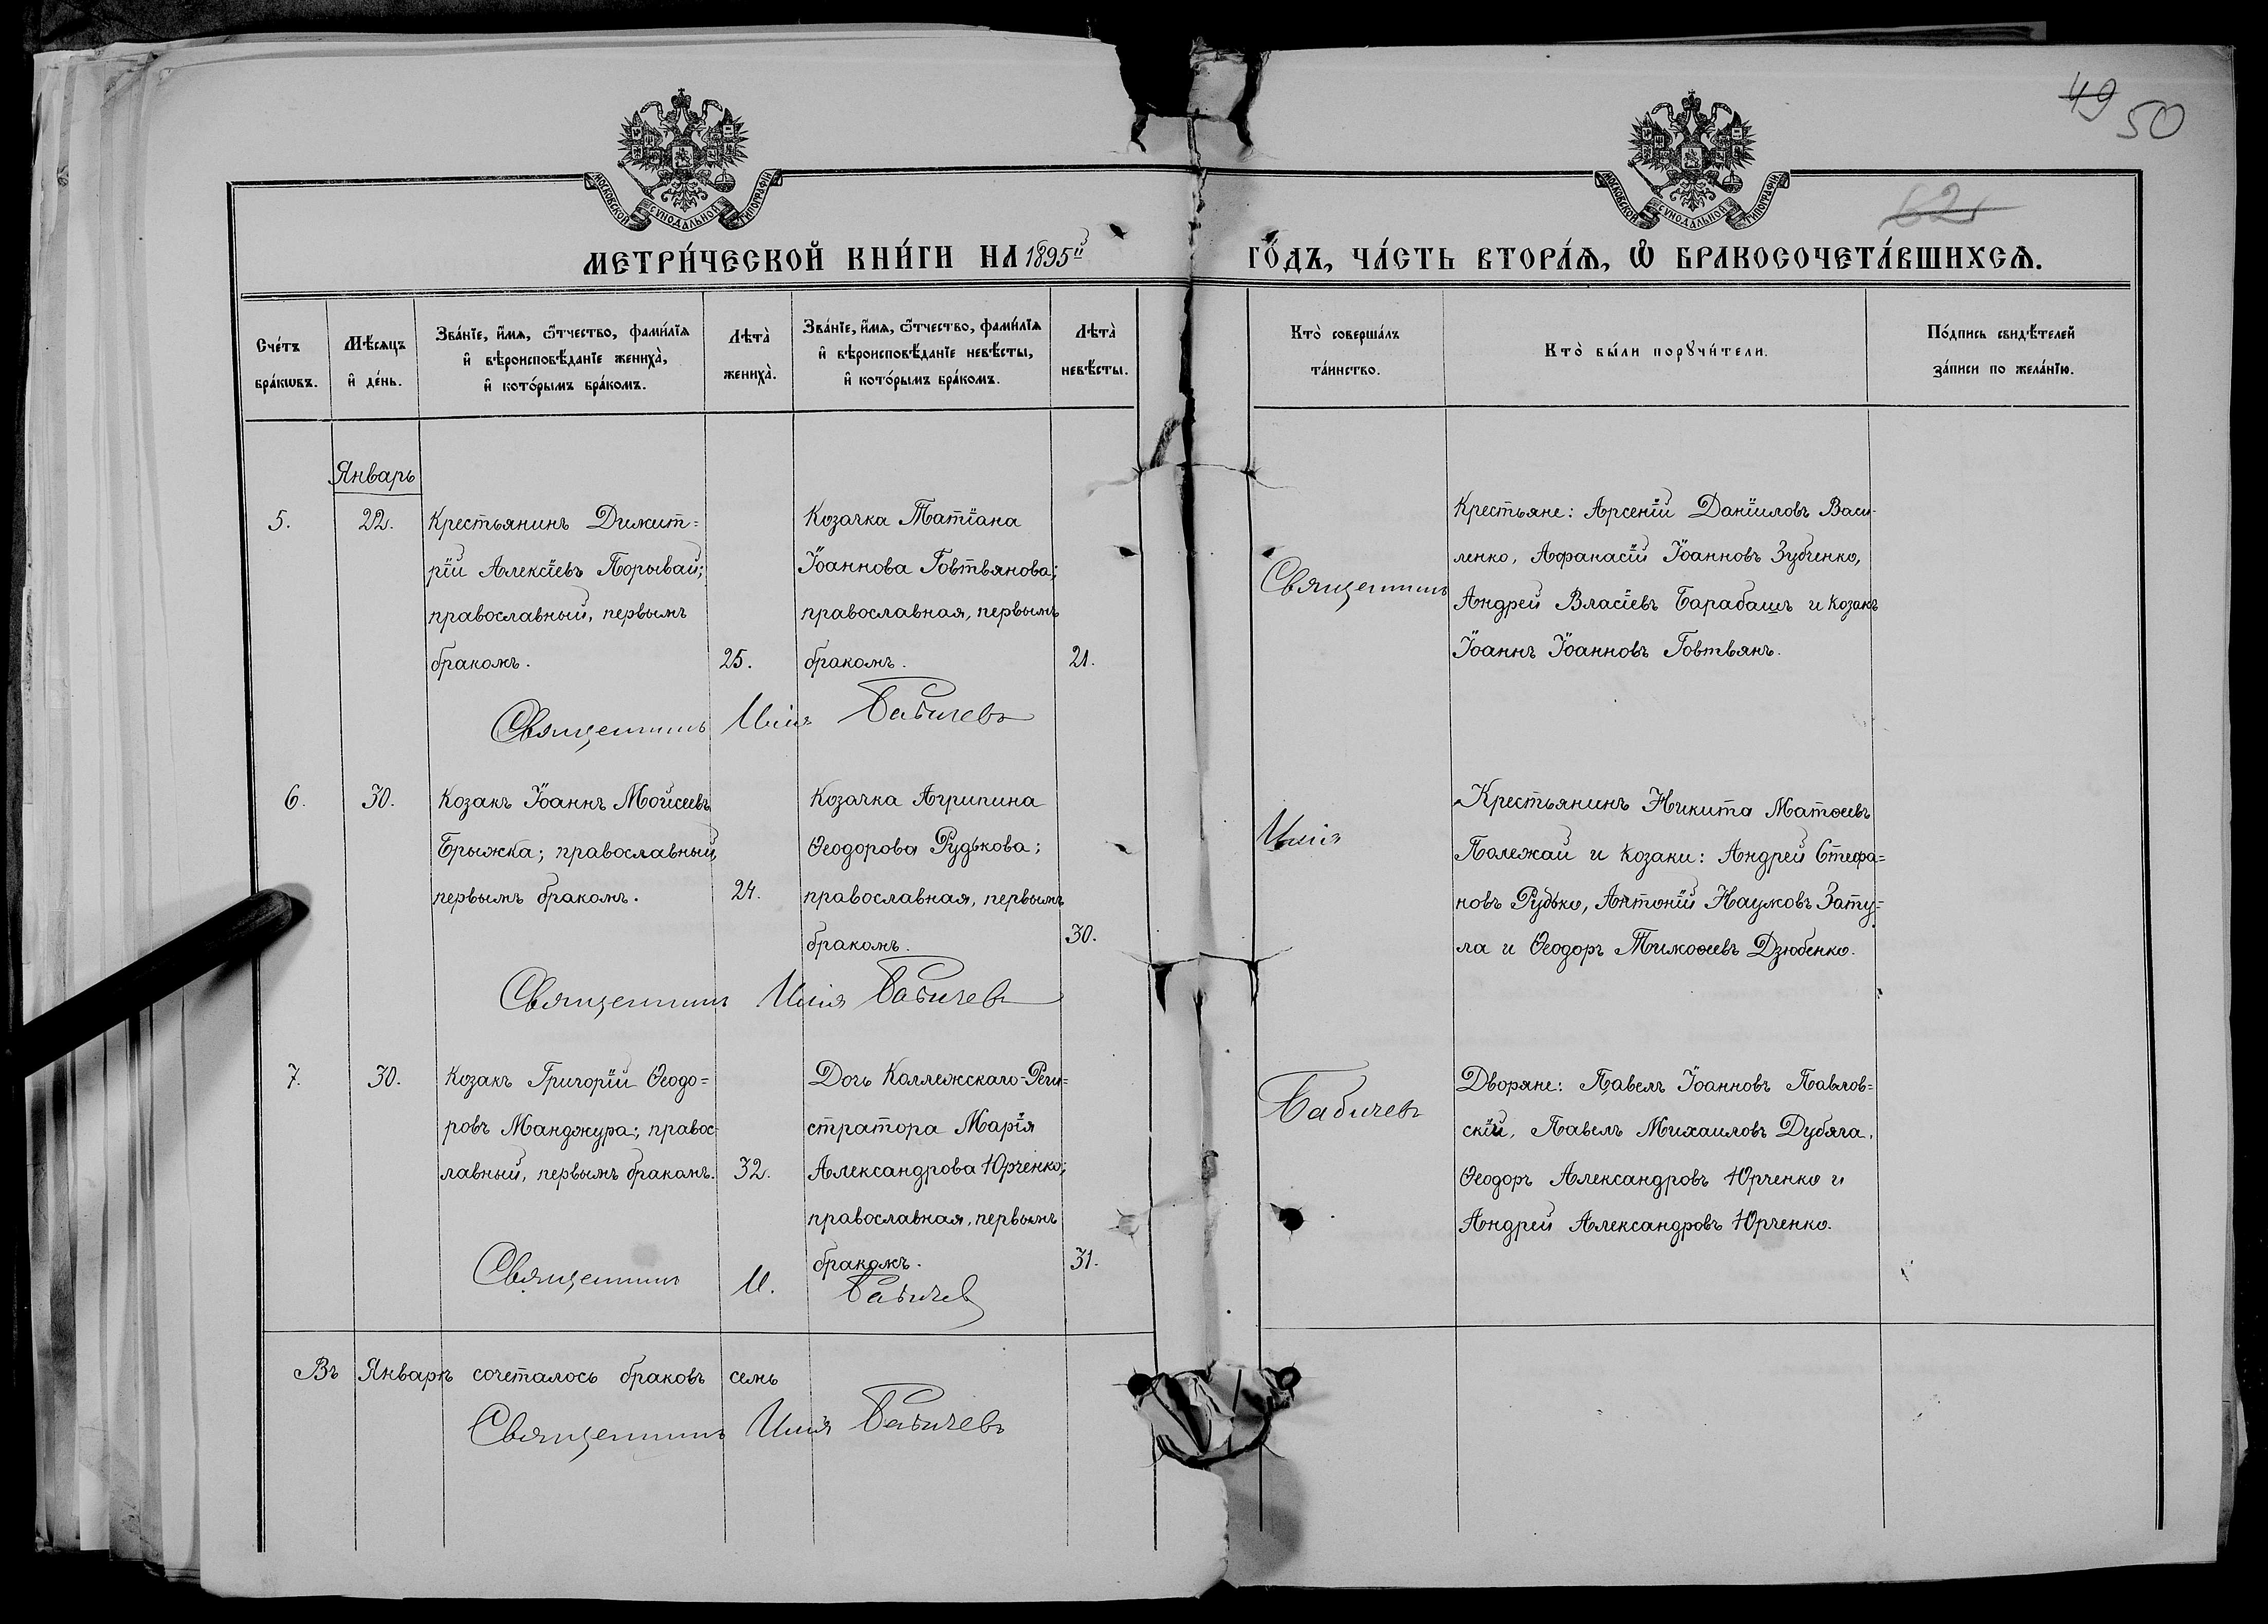 49 50
62
МОСКОВСКОЙ СѴНОДАЛЬНОЙ ТИПОГРАФІИ
МОСКОВСКОЙ СѴНОДАЛЬНОЙ ТИПОГРАФІИ
МЕТРИ́ЧЕСКОЙ КНИ́ГИ НА 1895й ГО́ДЪ, ЧА́СТЬ ВТОРА́Ѧ, Ѽ БРАКОСОЧЕТА́ВШИХСѦ.
Сче́тъ бра́кѡвъ.
Мѣ́сѧцъ и҆ де́нь.
Зва́нїе, и҆́мѧ, ѻ҆́тчество, фами́лїѧ и҆ вѣроисповѣ́данїе жениха̀, и҆ кото́рымъ бра́комъ.
Лѣта̀ жениха̀.
Зва́нїе, и҆́мѧ, ѻ҆́тчество, фами́лїѧ и҆ вѣроисповѣ́данїе невѣ́сты, и҆ кото́рымъ бра́комъ.
Лѣта̀ невѣ́сты.
Кто̀ соверша́лъ та́инство.
Кто̀ бы́ли порꙋчи́тели.
По́дпись свидѣ́телей за́писи по жела́нїю.
Январь
5.
22.
Крестьянинъ Димит=
рій Алексіевъ Порывай;
православный, первымъ
бракомъ.
25.
Козачка Татіана
Іоаннова Говтвянова;
православная, первымъ
бракомъ.
21.
Священникъ
Крестьяне: Арсеній Даніиловъ Васи-
ленко, Афанасій Іоанновъ Зубченко,
Андрей Власіевъ Барабашъ и козакъ
Іоаннъ Іоанновъ Говтвянъ.
Священникъ Илія Бабичевъ
6.
30.
Козакъ Іоаннъ Мойсеевъ
Брыжка; православный,
первымъ бракомъ.
24.
Козачка Агрипина
Ѳеодорова Рудькова;
православная, первымъ
бракомъ.
30.
Илія
Крестьянинъ Никита Матѳеевъ
Полежай и козаки: Андрей Стефа=
новъ Рудько, Антоній Наумовъ Зату=
ла и Ѳеодоръ Тимоѳеевъ Дзюбенко.
Священникъ Илія Бабичевъ
7.
30.
Козакъ Григорій Ѳеодо=
ровъ Манджура; правос-
лавный, первымъ бракомъ.
32.
Дочь Коллежскаго-Реги=
стратора Марія
Александрова Юрченко;
православная, первымъ
бракомъ.
31.
Бабичевъ
Дворяне: Павелъ Іоанновъ Павлов=
скій, Павелъ Михаиловъ Дубяга,
Ѳеодоръ Александровъ Юрченко и
Андрей Александровъ Юрченко.
Священникъ И. Бабичев
Въ Январѣ сочеталось браковъ семь
Священникъ Илія Бабичевъ